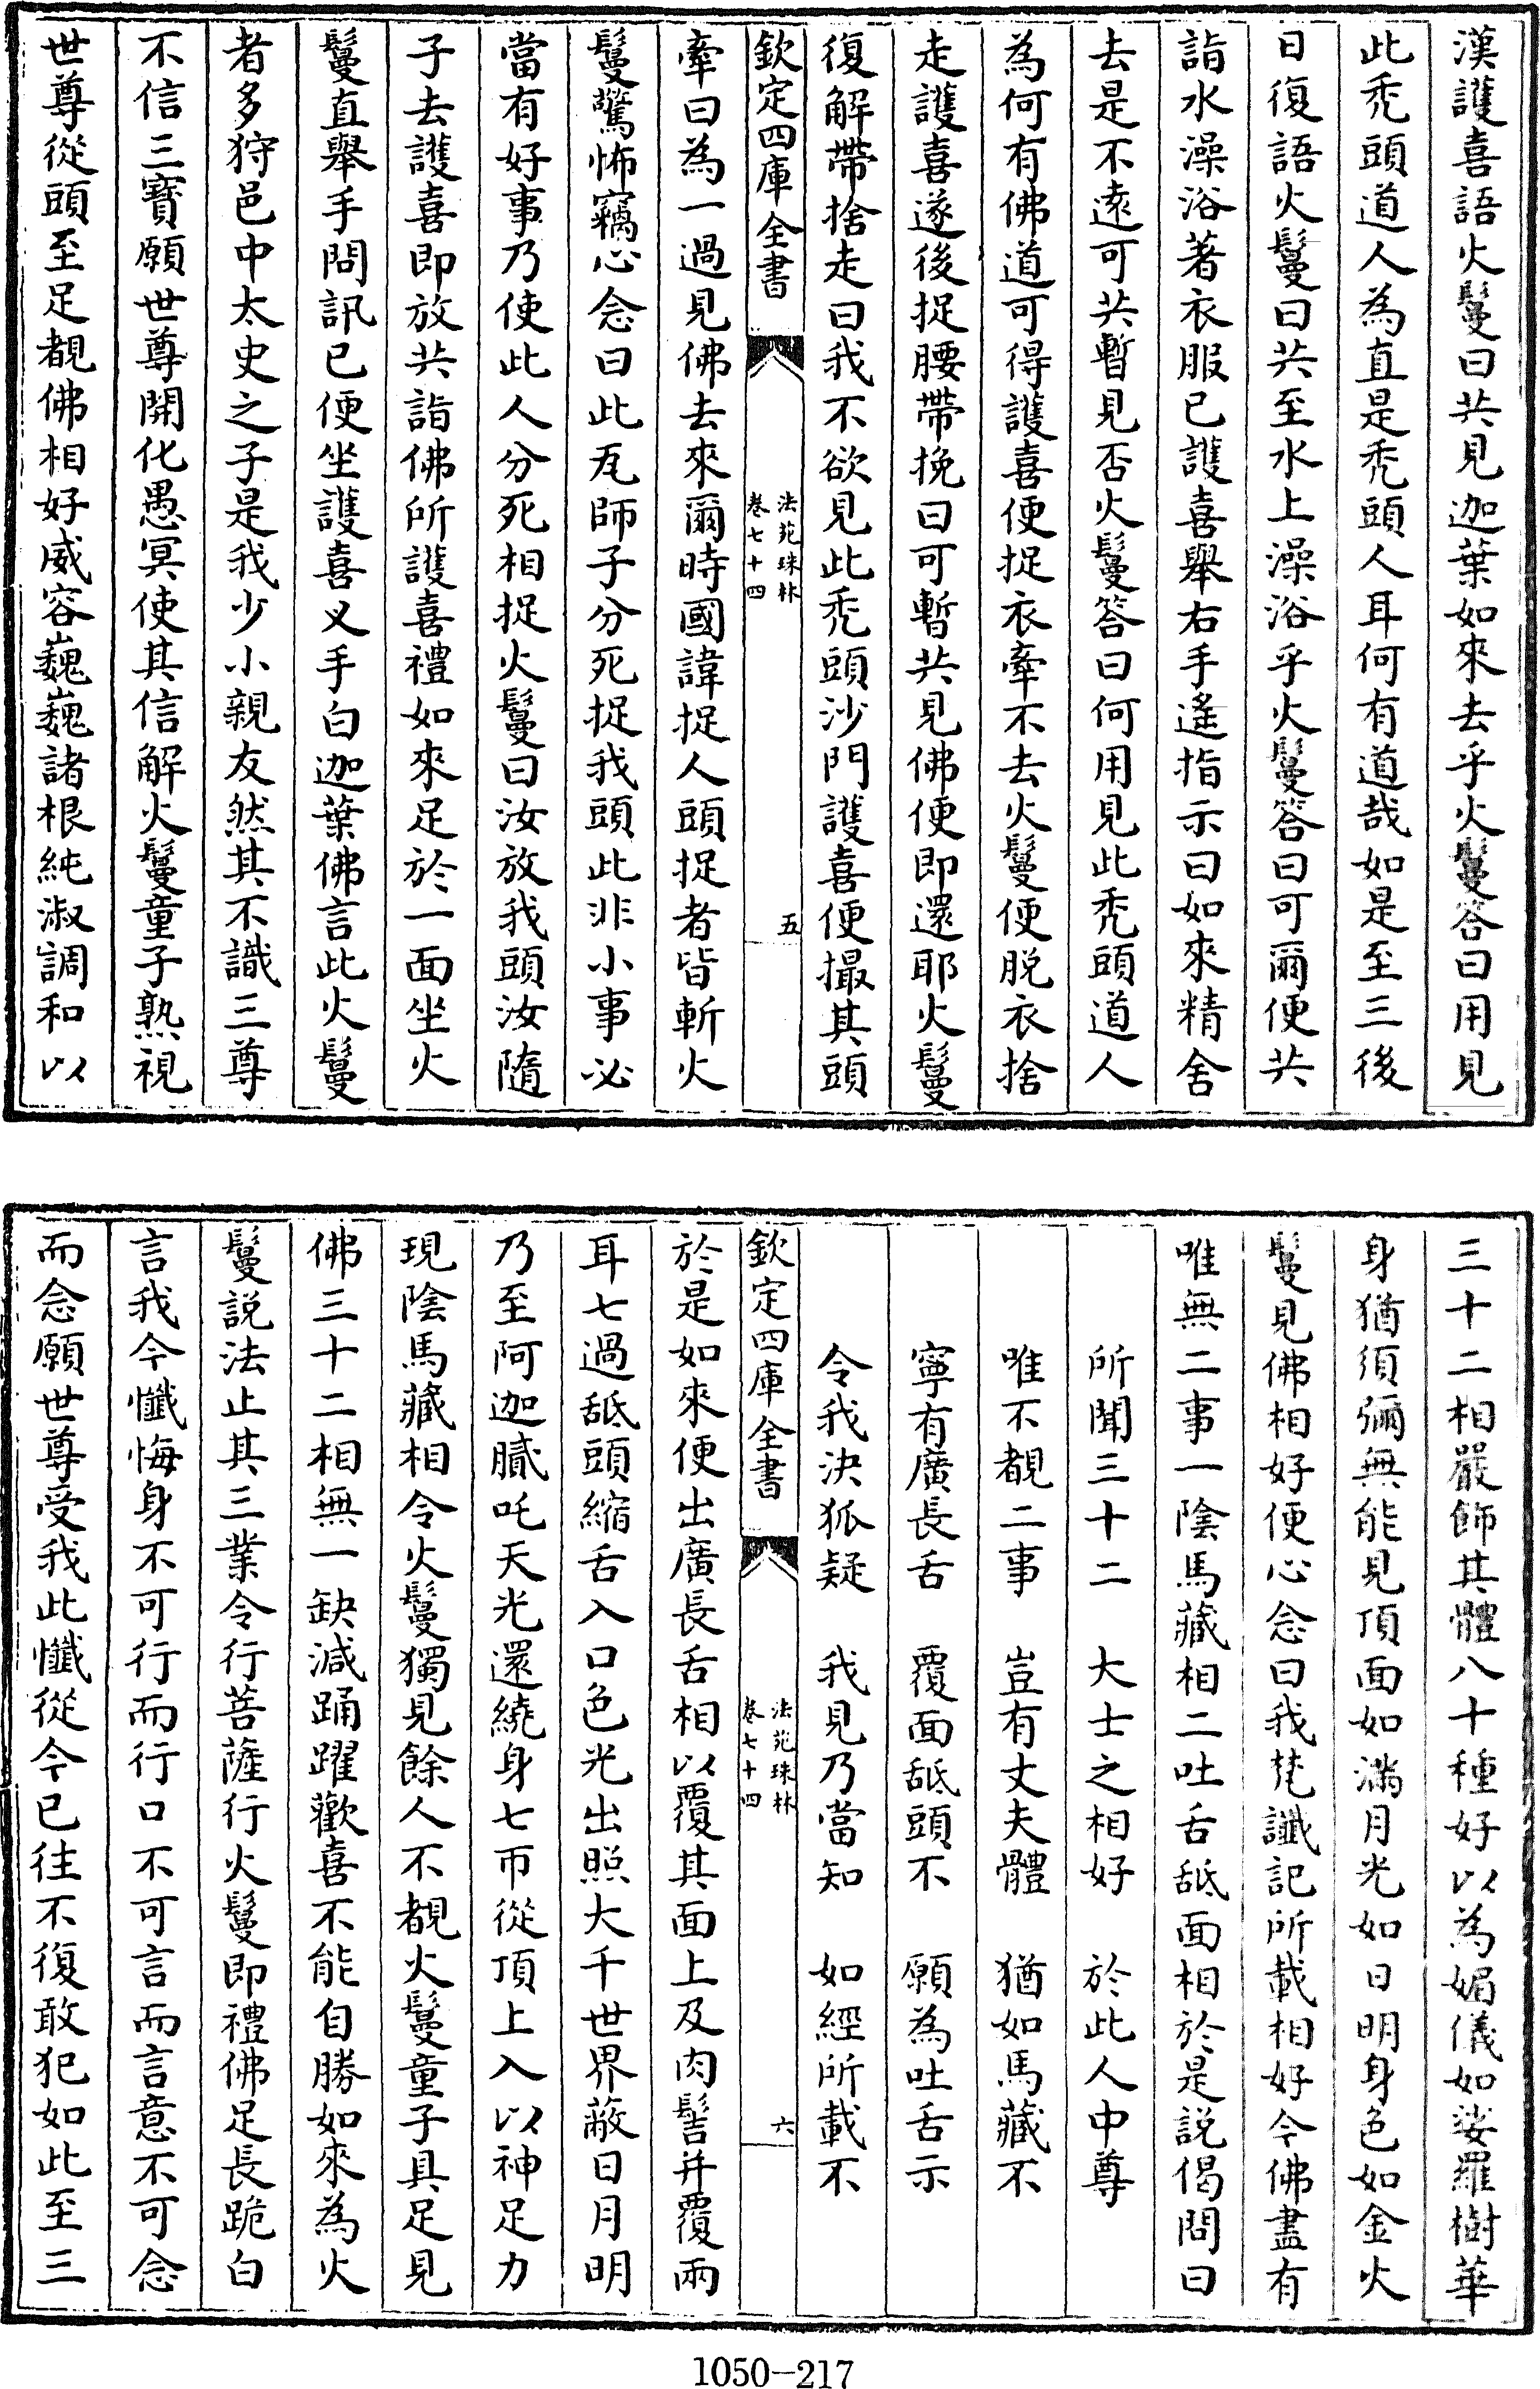 漢護喜語火鬘曰共見迦葉如來去乎火鬘答曰用見
此禿頭道人為直是禿頭人耳何有道哉如是至三後
日復語火鬘曰共至水上澡浴乎火鬘答曰可爾便共
詣水澡浴著衣服已護喜舉右手遙指示曰如來精舍
去是不遠可共暫見否火鬘答曰何用見此禿頭道人
為何有佛道可得護喜便捉衣牽不去火鬘便脱衣捨
走護喜遂後捉腰帶挽曰可暫共見佛便即還耶火鬘
復解帶捨走曰我不欲見此禿頭沙門護喜便撮其頭
欽定四庫全書
法苑珠林
卷七十四
五
牽曰為一過見佛去來爾時國諱捉人頭捉者皆斬火
鬘驚怖竊心念曰此瓦師子分死捉我頭此非小事必
當有好事乃使此人分死相捉火鬘曰汝放我頭汝隨
子去護喜即放共詣佛所護喜禮如來足於一面坐火
鬘直舉手問訊已便坐護喜义手白迦葉佛言此火鬘
者多狩邑中太史之子是我少小親友然其不識三尊
不信三寶願世尊開化愚冥使其信解火鬘童子熟視
世尊從頭至足覩佛相好威容巍巍諸根純淑調和以
三十二相嚴飾其體八十種好以為媚儀如娑羅樹華
身猶須彌無能見頂面如滿月光如日明身色如金火
鬘見佛相好便心念曰我梵讖記所載相好今佛盡有
唯無二事一陰馬藏相二吐舌舐面相於是説偈問曰
所聞三十二　大士之相好　於此人中尊
唯不覩二事　豈有丈夫體　猶如馬藏不
寧有廣長舌　覆面舐頭不　願為吐舌示
令我決狐疑　我見乃當知　如經所載不
欽定四庫全書
法苑珠林
卷七十四
六
於是如來便出廣長舌相以覆其面上及肉髻并覆兩
耳七過舐頭縮舌入口色光出照大千世界蔽日月明
乃至阿迦膩吒天光還繞身七帀從頂上入以神足力
現陰馬藏相令火鬘獨見餘人不覩火鬘童子具足見
佛三十二相無一缺減踊躍歡喜不能自勝如來為火
鬘説法止其三業令行菩薩行火鬘即禮佛足長跪白
言我今懺悔身不可行而行口不可言而言意不可念
而念願世尊受我此懺從今已往不復敢犯如此至三
1050-217